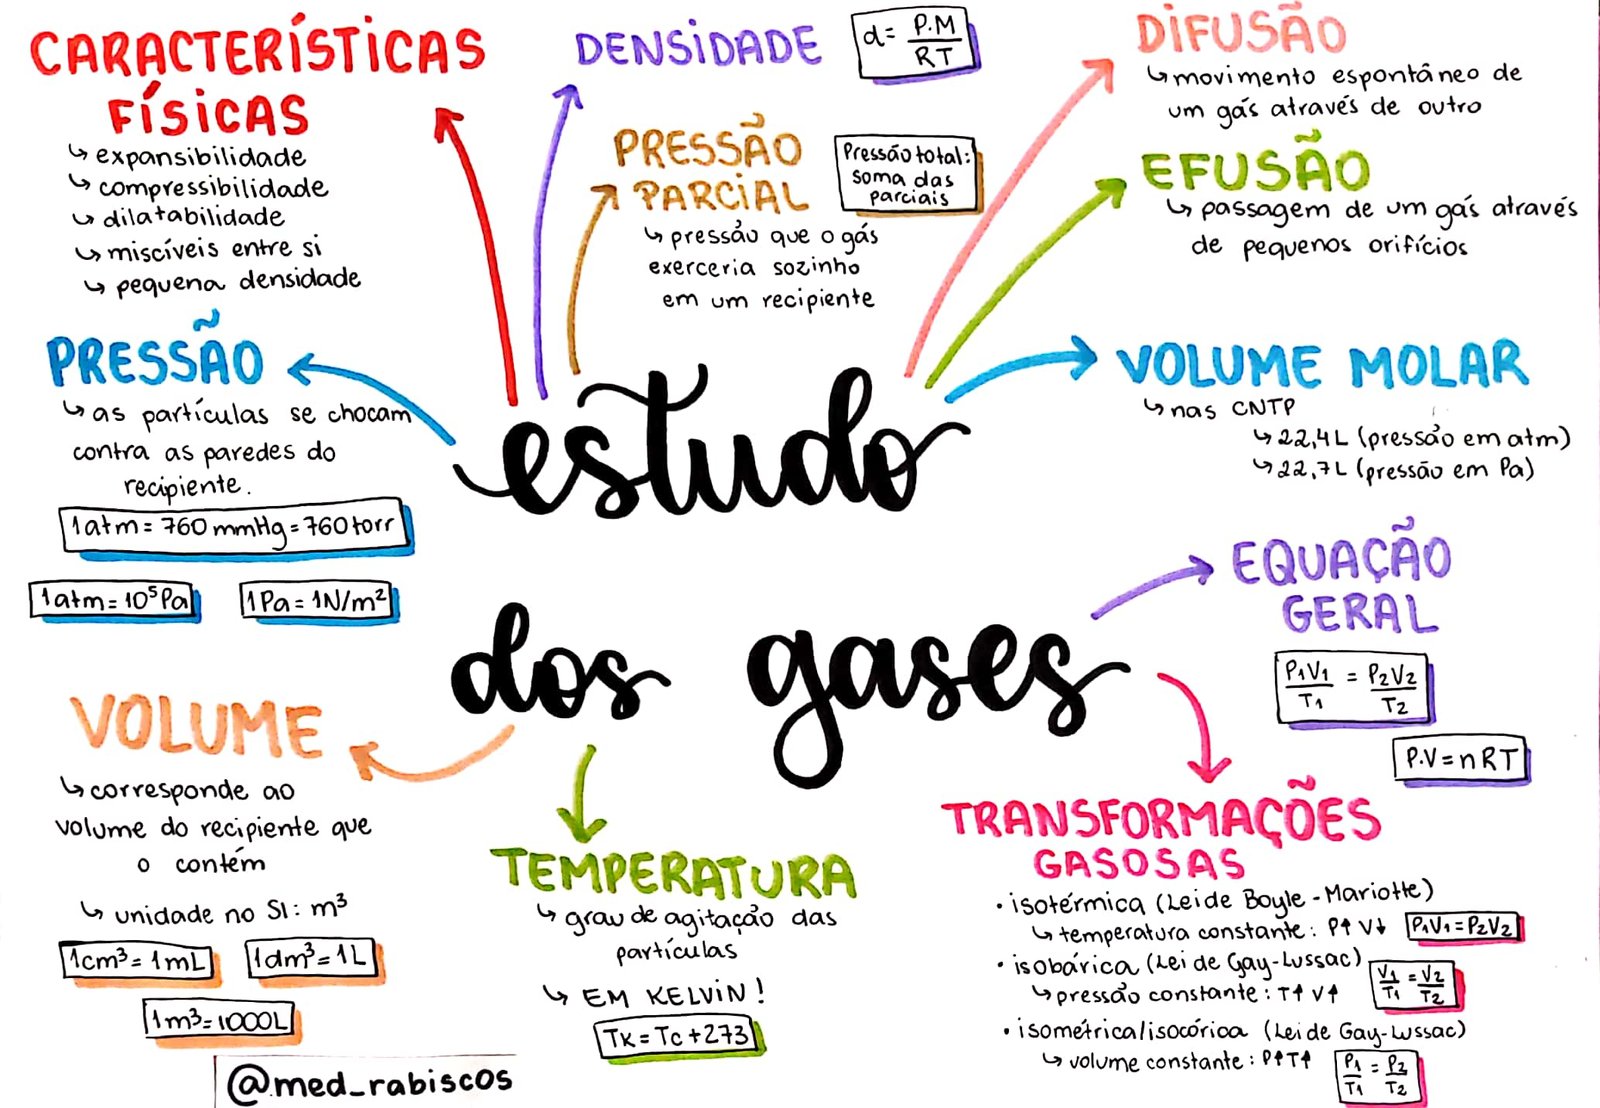 CARACTERÍSTICAS
FÍSICAS
↳ expansibilidade
↳ compressibilidade
↳ dilatabilidade
↳ miscíveis entre si
↳ pequena densidade
DENSIDADE
d = P.M / RT
PRESSÃO
PARCIAL
↳ pressão que o gás
exerceria sozinho
em um recipiente
Pressão total:
soma das
parciais
DIFUSÃO
↳ movimento espontâneo de
um gás através de outro
EFUSÃO
↳ passagem de um gás através
de pequenos orifícios
PRESSÃO
↳ as partículas se chocam
contra as paredes do
recipiente.
1 atm = 760 mmHg = 760 torr
1 atm = 10⁵ Pa
1 Pa = 1 N/m²
estudo
dos gases
VOLUME MOLAR
↳ nas CNTP
↳ 22,4 L (pressão em atm)
↳ 22,7 L (pressão em Pa)
EQUAÇÃO
GERAL
P₁V₁ / T₁ = P₂V₂ / T₂
P.V = nRT
VOLUME
↳ corresponde ao
volume do recipiente que
o contém
↳ unidade no SI: m³
1cm³ = 1mL
1dm³ = 1L
1m³ = 1000L
TEMPERATURA
↳ grau de agitação das
partículas
↳ EM KELVIN!
Tk = Tc + 273
TRANSFORMAÇÕES
GASOSAS
• isotérmica (Lei de Boyle - Mariotte)
↳ temperatura constante: P↑ V↓ P₁V₁ = P₂V₂
• isobárica (Lei de Gay-Lussac)
↳ pressão constante: T↑ V↑ V₁ / T₁ = V₂ / T₂
• isométrica/isocórica (Lei de Gay-Lussac)
↳ volume constante: P↑ T↑ P₁ / T₁ = P₂ / T₂
@med_rabiscos